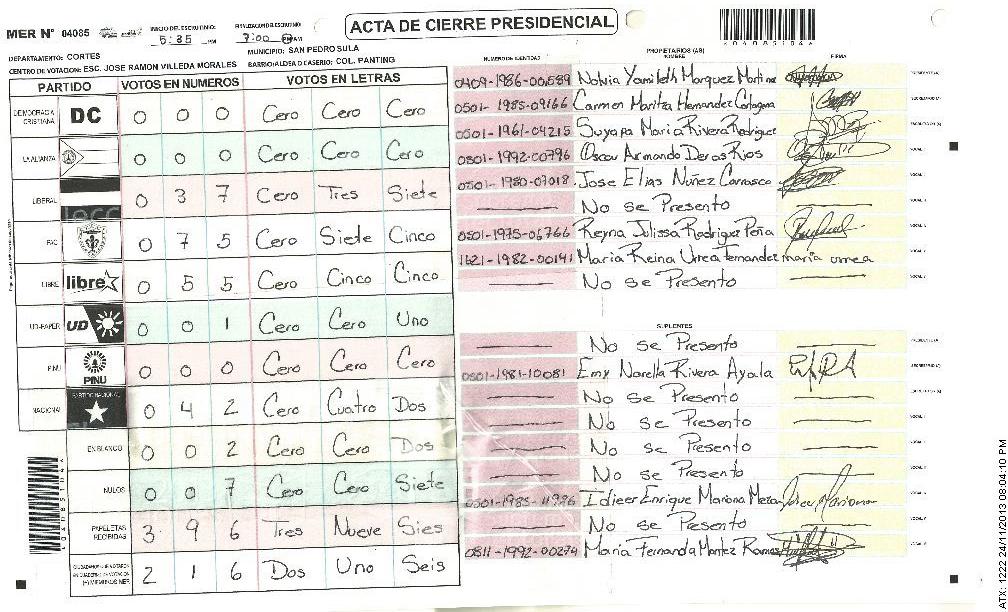 ACTA DE CIERRE PRESIDENCIAL
MER N° 04085
INICIO DEL ESCRUTINIO: 5:35 PM
FINALIZACION DEL ESCRUTINIO: 7:00 PM AM
DEPARTAMENTO: CORTES
MUNICIPIO: SAN PEDRO SULA
CENTRO DE VOTACION: ESC. JOSE RAMON VILLEDA MORALES
BARRIO/ALDEA O CASERIO: COL. PANTING
PARTIDO VOTOS EN NUMEROS VOTOS EN LETRAS
DEMOCRACIA CRISTIANA DC 0 0 0 Cero Cero Cero
LA ALIANZA 0 0 0 Cero Cero Cero
LIBERAL 0 3 7 Cero Tres Siete
PAC 0 7 5 Cero Siete Cinco
LIBRE libre 0 5 5 Cero Cinco Cinco
UD-FAPER UD 0 0 1 Cero Cero Uno
PINU PINU 0 0 0 Cero Cero Cero
NACIONAL PARTIDO NACIONAL 0 4 2 Cero Cuatro Dos
EN BLANCO 0 0 2 Cero Cero Dos
NULOS 0 0 7 Cero Cero Siete
PAPELETAS RECIBIDAS 3 9 6 Tres Nueve Sies
CIUDADANOS QUE VOTARON 2 1 6 Dos Uno Seis
*040851046*
NUMERO DE IDENTIDAD PROPIETARIOS (AS) NOMBRE FIRMA
0409-1986-00589 Nolvia Yamileth Marquez Martine PRESIDENTE (A)
0501-1985-09166 Carmen Maritza Hernandez Cartagena SECRETARIO (A)
0501-1961-04215 Suyapa Maria Rivera Rodriguez ESCRUTADOR (A)
0501-1992-00796 Oscar Armando Deras Rios VOCAL I
0501-1980-07018 Jose Elias Nuñez Carrasco VOCAL II
No se Presento
0501-1975-06766 Reyna Julissa Rodriguez Peña
1621-1982-00141 Maria Reina Urrea Fernandez maria urrea
No se Presento
SUPLENTES
No se Presento PRESIDENTE (A)
0501-1981-10081 Emy Norella Rivera Ayala SECRETARIO (A)
No se Presento
No se Presento
No se Presento
No se Presento
0501-1985-11996 Idieer Enrique Mariona Meza
No se Presento
0811-1992-00274 Maria Fernanda Montez Ramos
ATX: 1222 24/11/2013 08:04:10 PM